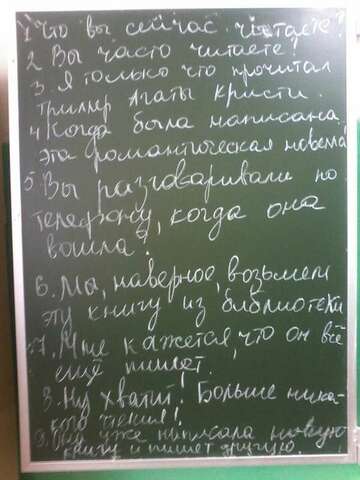 1 Что вы сейчас читаете?
2 Вы часто читаете?
3. Я только что прочитал
триллер Агаты Кристи.
4 Когда была написана
эта романтическая новелла
5. Вы разговаривали по
телефону, когда она
вошла?
6. Мы, наверное, возьмем
эту книгу из библиотеки
7. Мне кажется, что он всё
ещё пишет.
8. Ну хватит! Больше ника-
кого чтения!
9. Она уже написала новую
книгу и пишет другую.